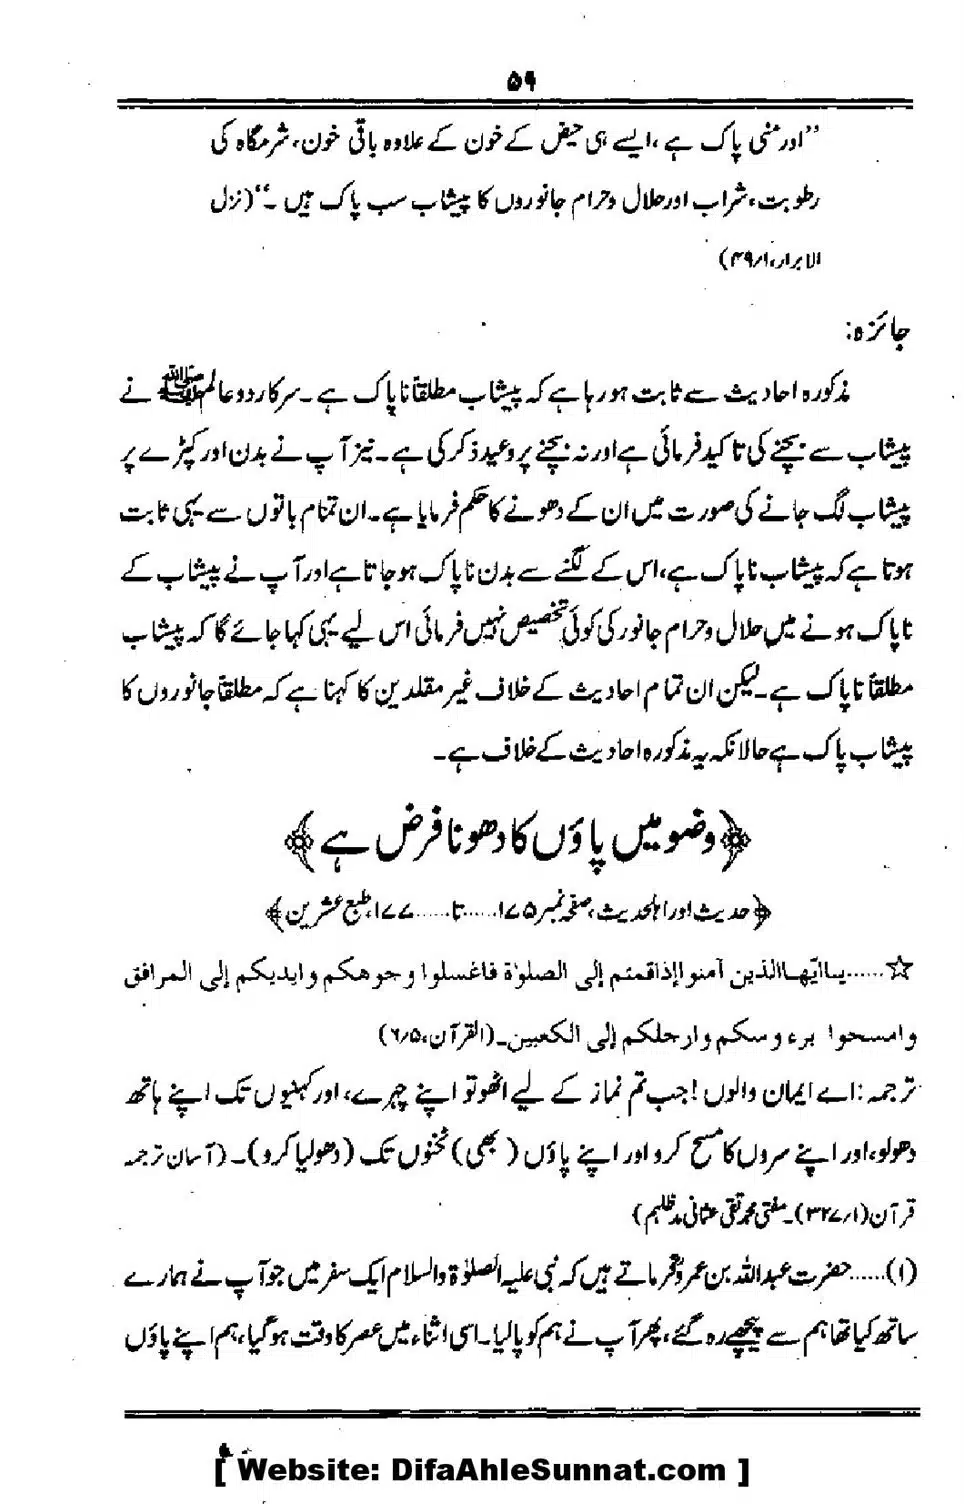 ۵۹
”اور منی پاک ہے ،ایسے ہی حیض کے خون کے علاوہ باقی خون، شرمگاہ کی
رطوبت، شراب اور حلال وحرام جانوروں کا پیشاب سب پاک ہیں ۔“ (نزل
الابرار، ۱/۴۹)
جائزہ:
مذکورہ احادیث سے ثابت ہورہا ہے کہ پیشاب مطلقاً ناپاک ہے۔ سرکار دوعالم ﷺ نے
پیشاب سے بچنے کی تاکید فرمائی ہے اور نہ بچنے پر وعید ذکر کی ہے۔ نیز آپ نے بدن اور کپڑے پر
پیشاب لگ جانے کی صورت میں ان کے دھونے کا حکم فرمایا ہے۔ ان تمام باتوں سے یہی ثابت
ہوتا ہے کہ پیشاب ناپاک ہے، اس کے لگنے سے بدن ناپاک ہوجاتا ہے اور آپ نے پیشاب کے
ناپاک ہونے میں حلال وحرام جانور کی کوئی تخصیص نہیں فرمائی اس لیے یہی کہا جائے گا کہ پیشاب
مطلقاً ناپاک ہے۔ لیکن ان تمام احادیث کے خلاف غیر مقلدین کا کہنا ہے کہ مطلقاً جانوروں کا
پیشاب پاک ہے حالانکہ یہ مذکورہ احادیث کے خلاف ہے۔
﴿وضو میں پاؤں کا دھونا فرض ہے﴾
﴿حدیث اور اہلحدیث، صفحہ نمبر ۱۷۵......تا......۱۷۷، طبع عشرین﴾
☆......یاایّھاالذین آمنوا إذاقمتم إلی الصلوٰۃ فاغسلوا وجوھکم وایدیکم إلی المرافق
وامسحوا برءوسکم وارجلکم إلی الکعبین۔ (القرآن، ۶/۵)
ترجمہ: اے ایمان والوں! جب تم نماز کے لیے اٹھو تو اپنے چہرے، اور کہنیوں تک اپنے ہاتھ
دھولو، اور اپنے سروں کا مسح کرو اور اپنے پاؤں (بھی) ٹخنوں تک (دھولیا کرو)۔ (آسان ترجمہ
قرآن (۱/۳۲۷)۔ مفتی محمد تقی عثمانی مدظلہم)
(۱)......حضرت عبداللہ بن عمروؓ فرماتے ہیں کہ نبی علیہ الصلوٰۃ والسلام ایک سفر میں جو آپ نے ہمارے
ساتھ کیا تھا ہم سے پیچھے رہ گئے، پھر آپ نے ہم کو پالیا۔ اسی اثناء میں عصر کا وقت ہوگیا، ہم اپنے پاؤں
[ Website: DifaAhleSunnat.com ]